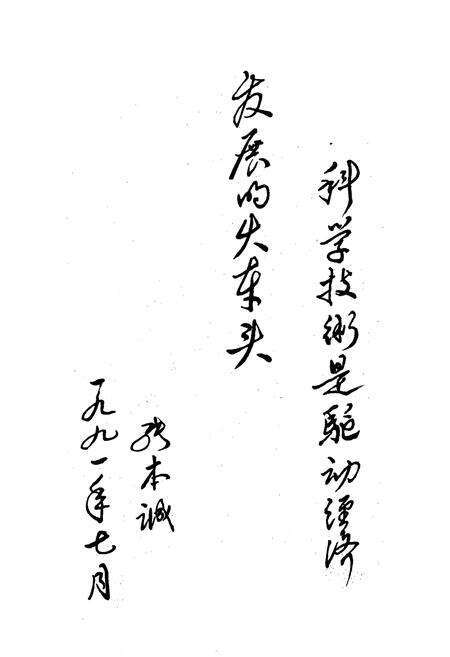 科学技術是驱动經济
发展的火车头
张本诚
一九九一年七月